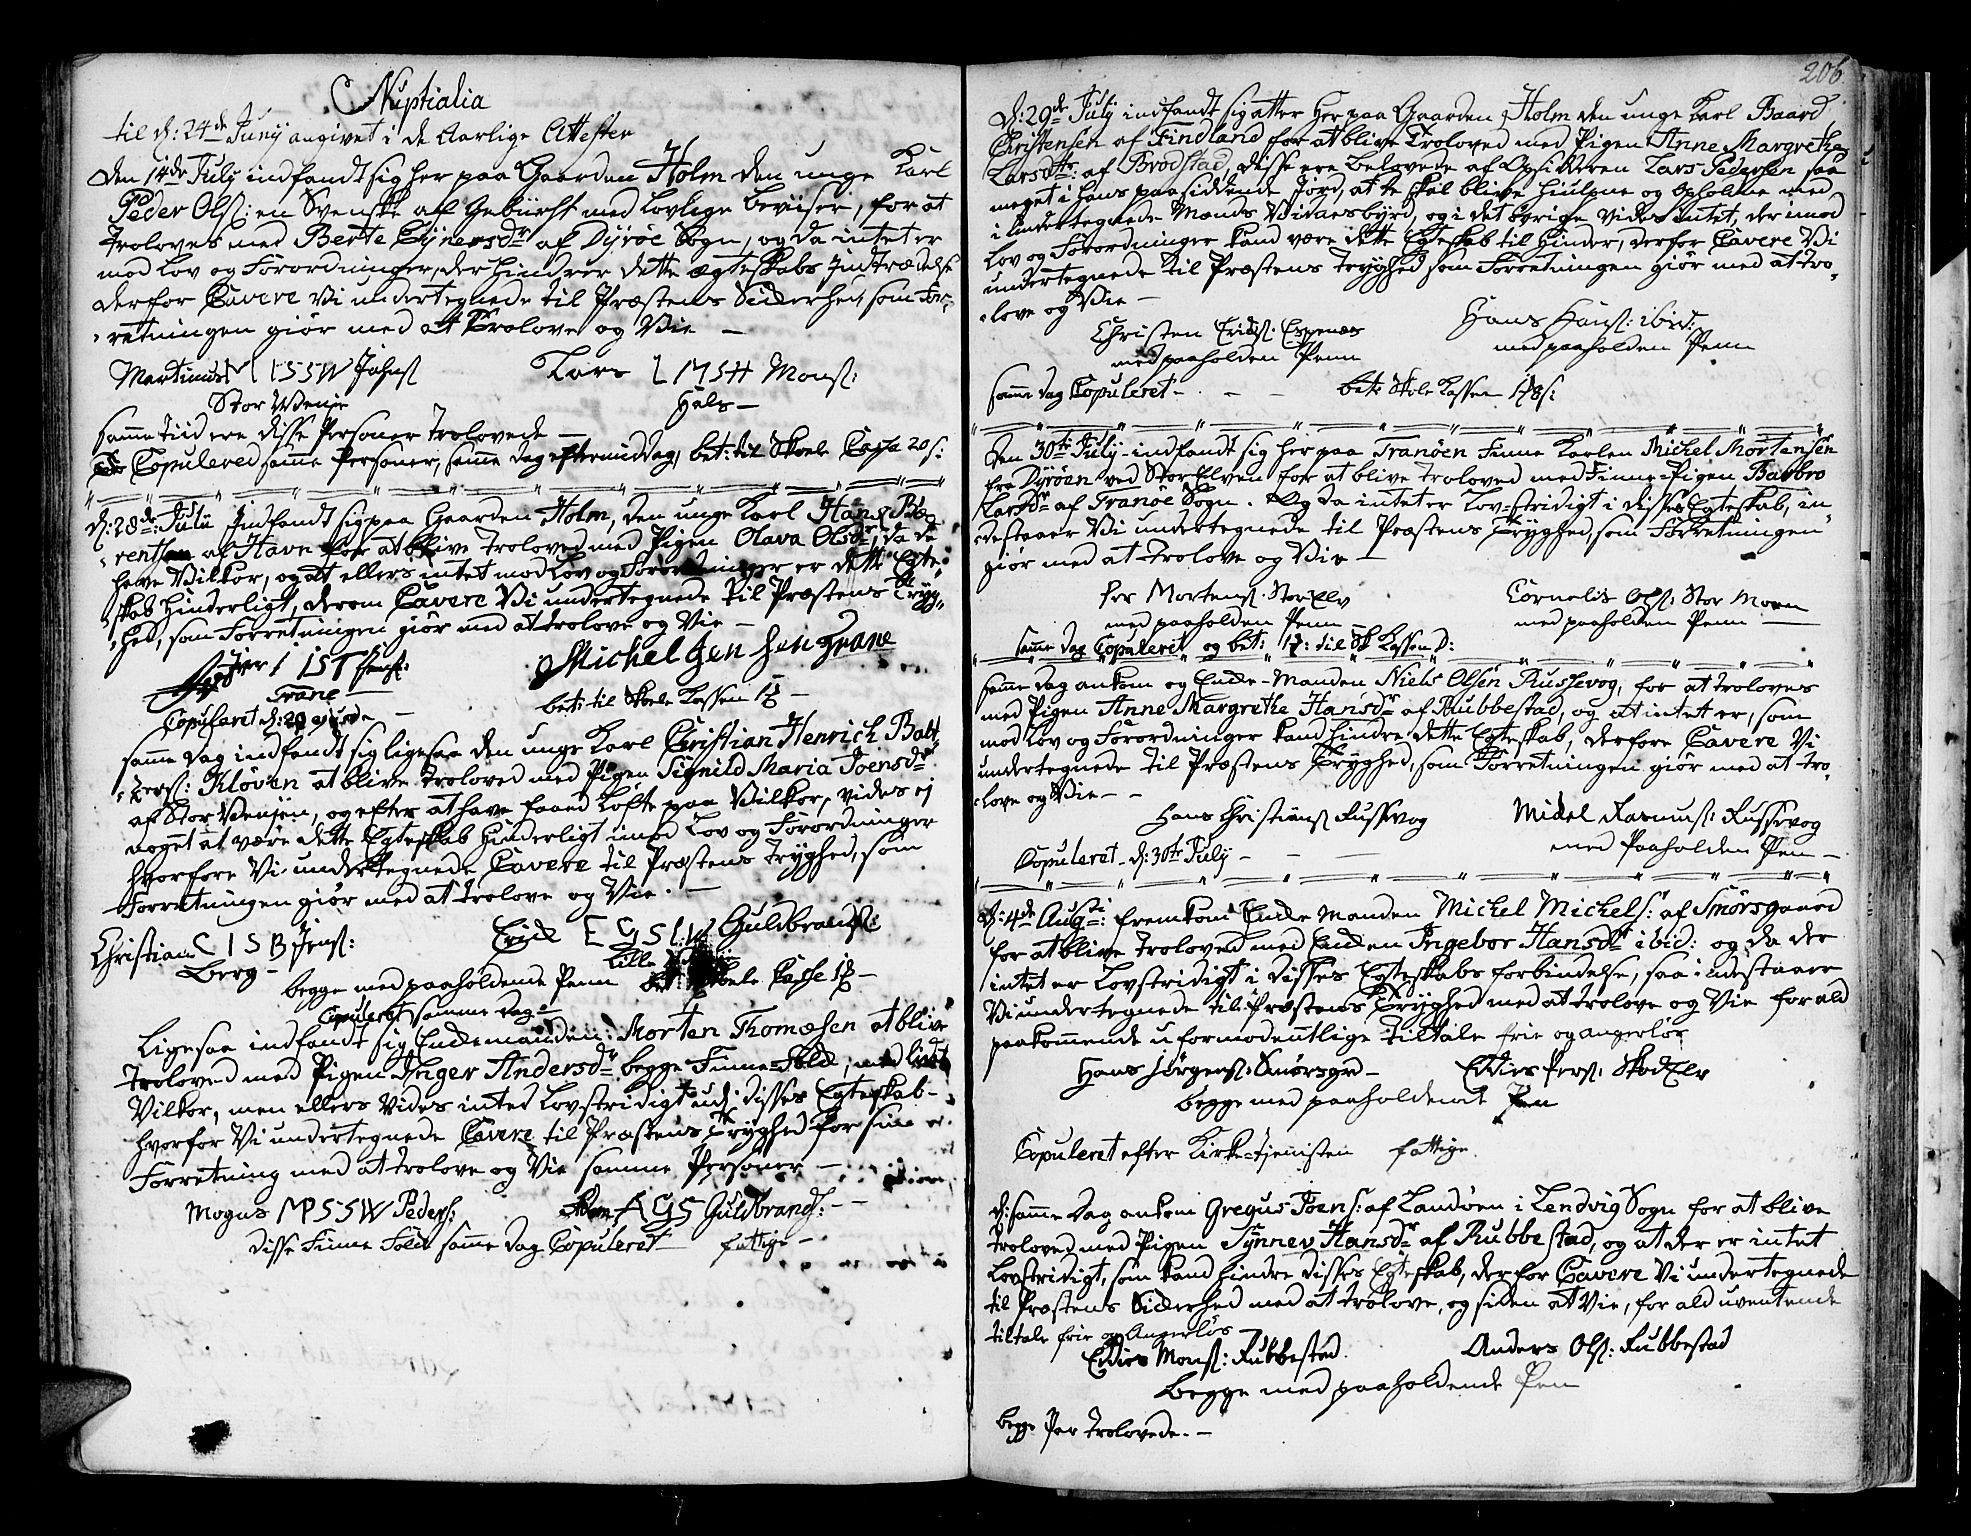 Nuptialia
til d: 24de Junij angivet i de Aarlige Attester
Den 14de July indfandt sig her paa Gaarden Holm den unge Karl
Peder Ols: en Svenske af Gebürht med Lovlige beviiser, for at
troloves med Berte Ejnersdr af Dyröe Sogn, og da intet er
mod Lov og Forordninger, der hindrer dette ægteskabs Indtrædelse
derfor Cavere Vi undertegnede til Præstens Sickerhed, som For-
retningen giör med at Trolove og Vie —
Martinus Johns Lars L M S H Mons:
Stor Wenje Hals —
samme tiid ere disse Personer trolovede —
Copulered samme Personer, samme dag eftermiddag, bet: til Skole Cassa 20 s:
d: 28de Julii Indfandt sig paa Gaarden Holm, den unge Karl Hans
rentsen af Havn for at blive troloved med Pigen Olava Olsdr, da de
have Vilkor, og at ellers intet mod Lov og Forordninger er dette Egte-
skab hinderligt, derom Cavere Vi undertegnede til Præstens Tryg-
hed, som Forretningen giör med at trolove og Vie —
Michel Jensen Trane
Trane — bet: til Skole Kassen 1
Copuleret d: 29 ejusde —
samme dag indfandt sig ligesaa den unge Karl Christian Henrich Balt-
zers: Klöven at blive troloved med Pigen Signild Maria Joensdr
af Stor Venjen, og efter at have faaed Löfte paa Vilkor, vides ej
noget at være dette Egteskab hinderligt imod Lov og Forordninger
hvorfore Vi undertegnede Cavere til Præstens Tryghed, som
Forretningen giör med at trolove og Vie. —
Christian C I S B Jens: Erich E G S L W Guldbrands:
Berg — Lille
begge med paaholdende Penn bet Skole Casse 1 —
Copuleret samme dag —
Ligesaa indfandt sig Enckemanden: Morten Thomæsen at blive
troloved med Pigen Inger Andersdr begge Finne-Folck, med lidet
Vilkor, men ellers vides inted Lovstridigt udj disses Egteskab —
hvorfor Vi undertegnede Cavere til Præstens Tryghed for sin
Forretning med at trolove og Vie samme Personer —
Mogns M P S S W Peders: A G S Guldbrands: —
disse Finne Folck samme dag Copuleret — fattige —
206
d: 29de July indfandt sig atter her paa Gaarden Holm den unge Karl Baard
Christensen af Findland for at blive troloved med Pigen Anne Margrethe
Larsdtr: af Brödstad, disse ere belovede af Opsidderen Lars Pedersen saa
meget i hans paasiddende Jord, at de skal blive hiulpne og opholdne med
undertegnede Mænds Vidnesbyrd, og i det övrige vides intet, der imod
Lov og Forordninger kand være dette Egteskab til hinder, derfor Cavere Vi
undertegnede til Præstens tryghed som Forretningen giör med at tro-
love og Vie —
Christen Erichs: Espenæs Hans Hans: ibid:
med paaholden Penn med paaholden Penn
samme dag Copuleret — bet: Skole Kassen
Den 30te July indfandt sig her paa Tranöen Finne Karlen Michel Mortensen
fra Dyröen ved Stor Elven for at blive troloved med Finne-Pigen Barbro
Larsdr af Tranöe Sogn. Og da intet er Lov-stridigt i disses Egteskab, in-
destaaer Vi undertegnede til Præstens Tryghed, som Forretningen
giör med at trolove og Vie —
Per Mortens: Stor Elv Cornelis Ols: Stor Moen
med paaholden Penn — med paaholden Penn —
samme dag Copuleret og bet: til Sk Kassen
samme dag ankom og Encke-Manden Niels Olsen Russevog, for at troloves
med Pigen Anne Margrethe Hansdr af Rubbestad, og at intet er, som
mod Lov og Forordninger kand hindre dette Egteskab, derfore Cavere Vi
undertegnede til Præstens Tryghed, som Forretningen giör med at tro-
love og Vie —
Hans Christians Russevog Michel Rasmus: Russevog
med Paaholden Pen —
Copuleret d: 30te July —
d: 4de Augusti: fremkom Encke Manden Michel Michels: af Smörsgaard
for at blive troloved med Encken Ingebor Hansdr ibid: og da der
intet er Lovstridigt i disses Egteskabs forbindelse, saa indestaaer
Vi undertegnede til Præstens Tryghed med at trolove og Vie for ald
paakommende uformodentlige tiltale frie og angerlös
Hans Jörgens: Smörsgrd — Eddies Pers: Skod Elv
begge med paaholdende Pen
Copuleret efter Kirke-tjenisten fattige.
d: samme dag ankom Gregus Joens: af Landöen i Lendvig Sogn for at blive
troloved med Pigen Synnev Hansdr af Rubbestad, og at der er intet
Lovstridigt, som kand hindre disses Egteskab, derfor Cavere Vi undertegnede
til Præstens Sickerhed med at trolove, og siden at Vie, for ald uventende
tiltale frie og Angerlös
Eddies Mons: Rubbestad. Anders Ols: Rubbestad
begge med paaholdende Pen
begge Par trolovede. —